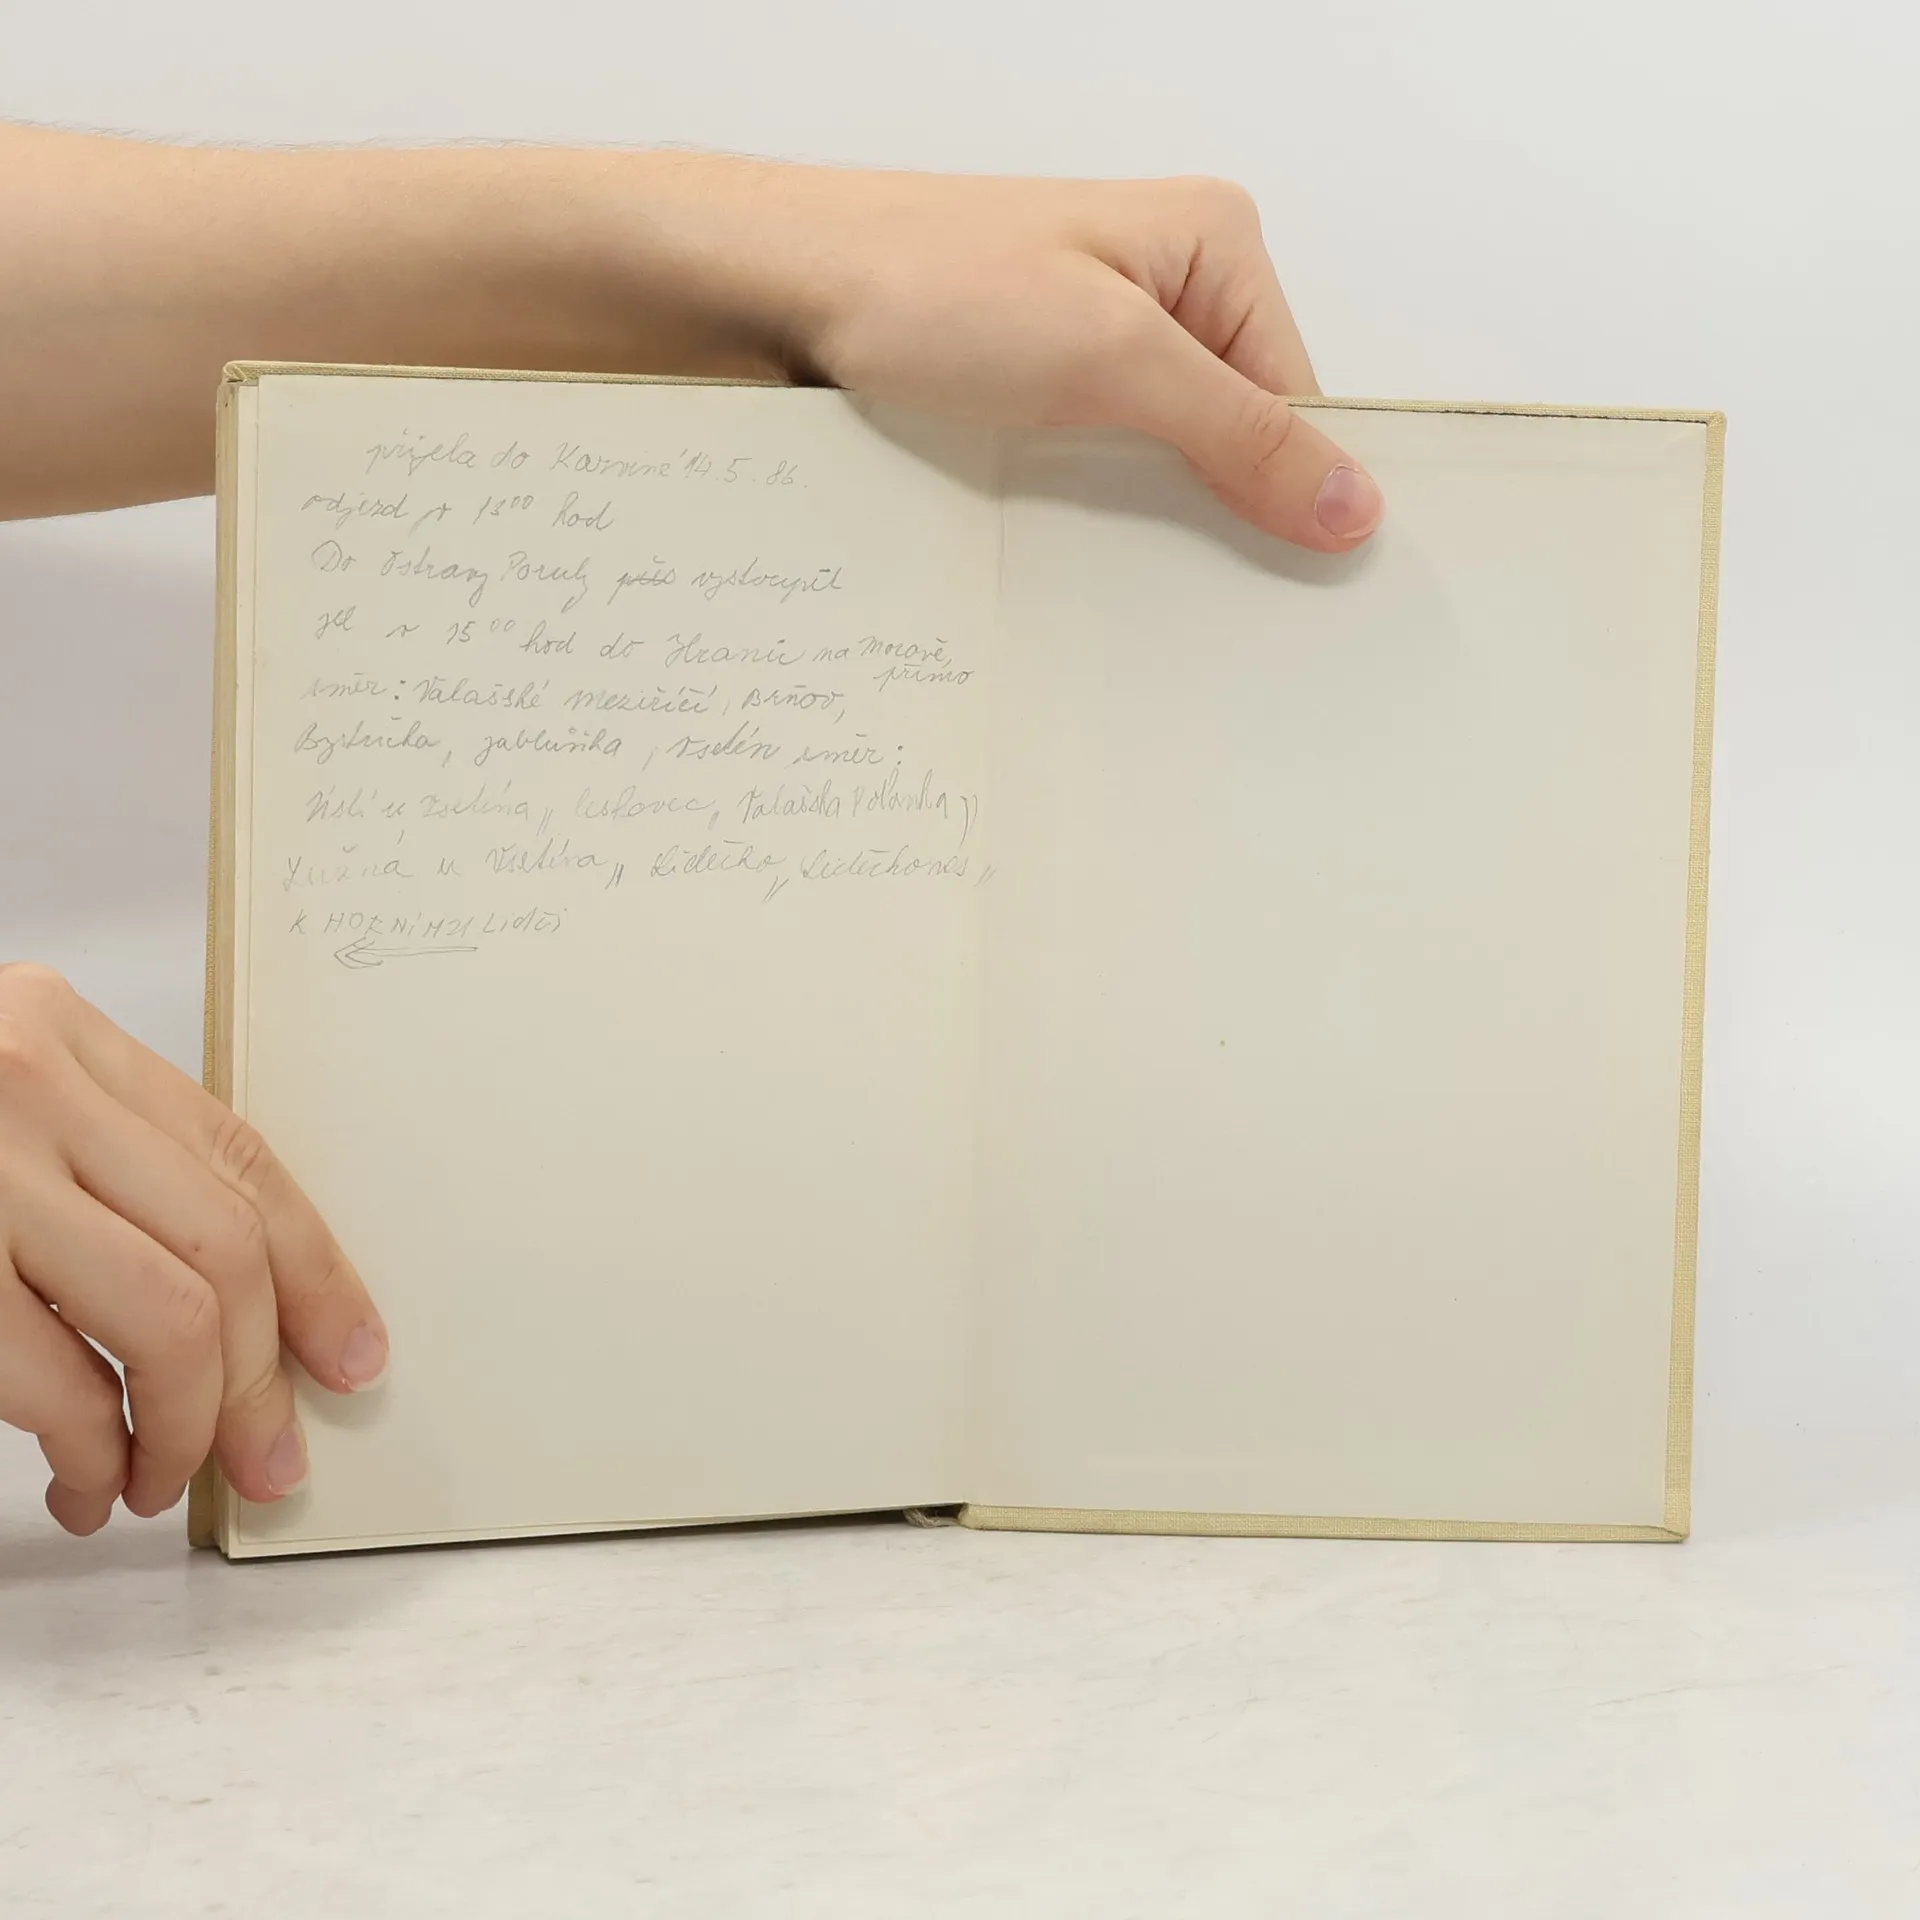 přijela do Karviné 14.5.86.
odjezd v 13⁰⁰ hod
Do Ostravy Poruby přís vystoupit
jel v 15⁰⁰ hod do Hranic na Moravě,
přímo
směr: Valašské Meziříčí, Brňov,
Bystřička, Jablůňka, Vsetín směr:
Ústí u Vsetína,, Leskovec,, Valašská Polanka,,
Lužná u Vsetína,, Lidečko,, Lidečko ves,,
K HORNÍMU Lidči